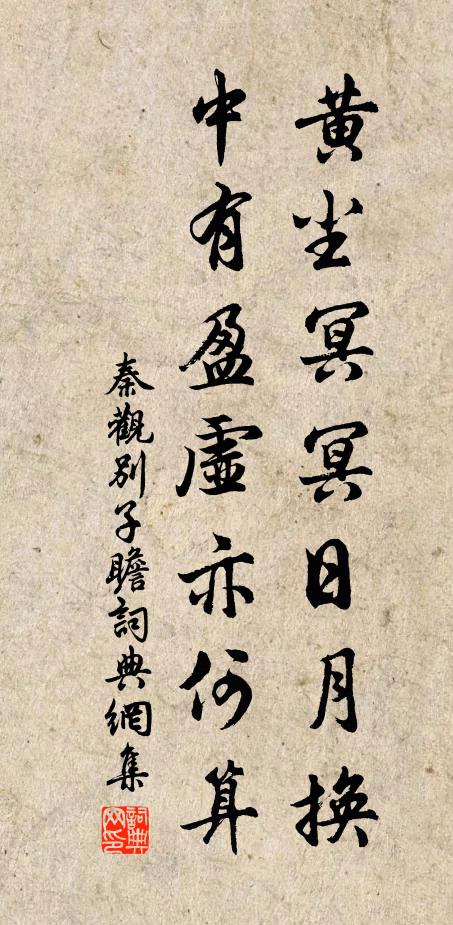 黄尘冥冥日月換
中有盈虛亦何算
秦觀別子瞻詞典網集
詞典网印